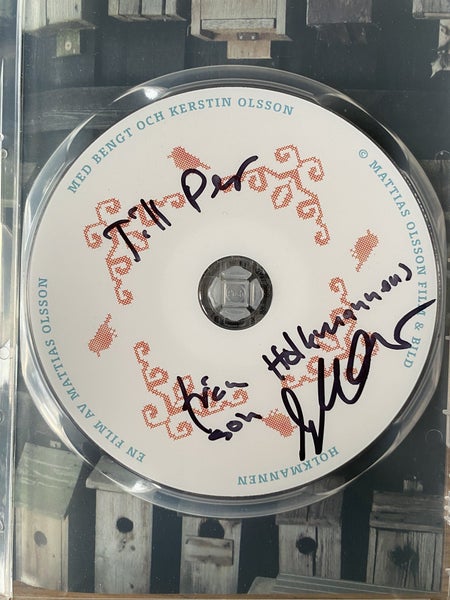 MED BENGT OCH KERSTIN OLSSON
© MATTIAS OLSSON FILM & BILD
Till Per
från Holkmannens
son
EN FILM AV MATTIAS OLSSON
HOLKMANNEN